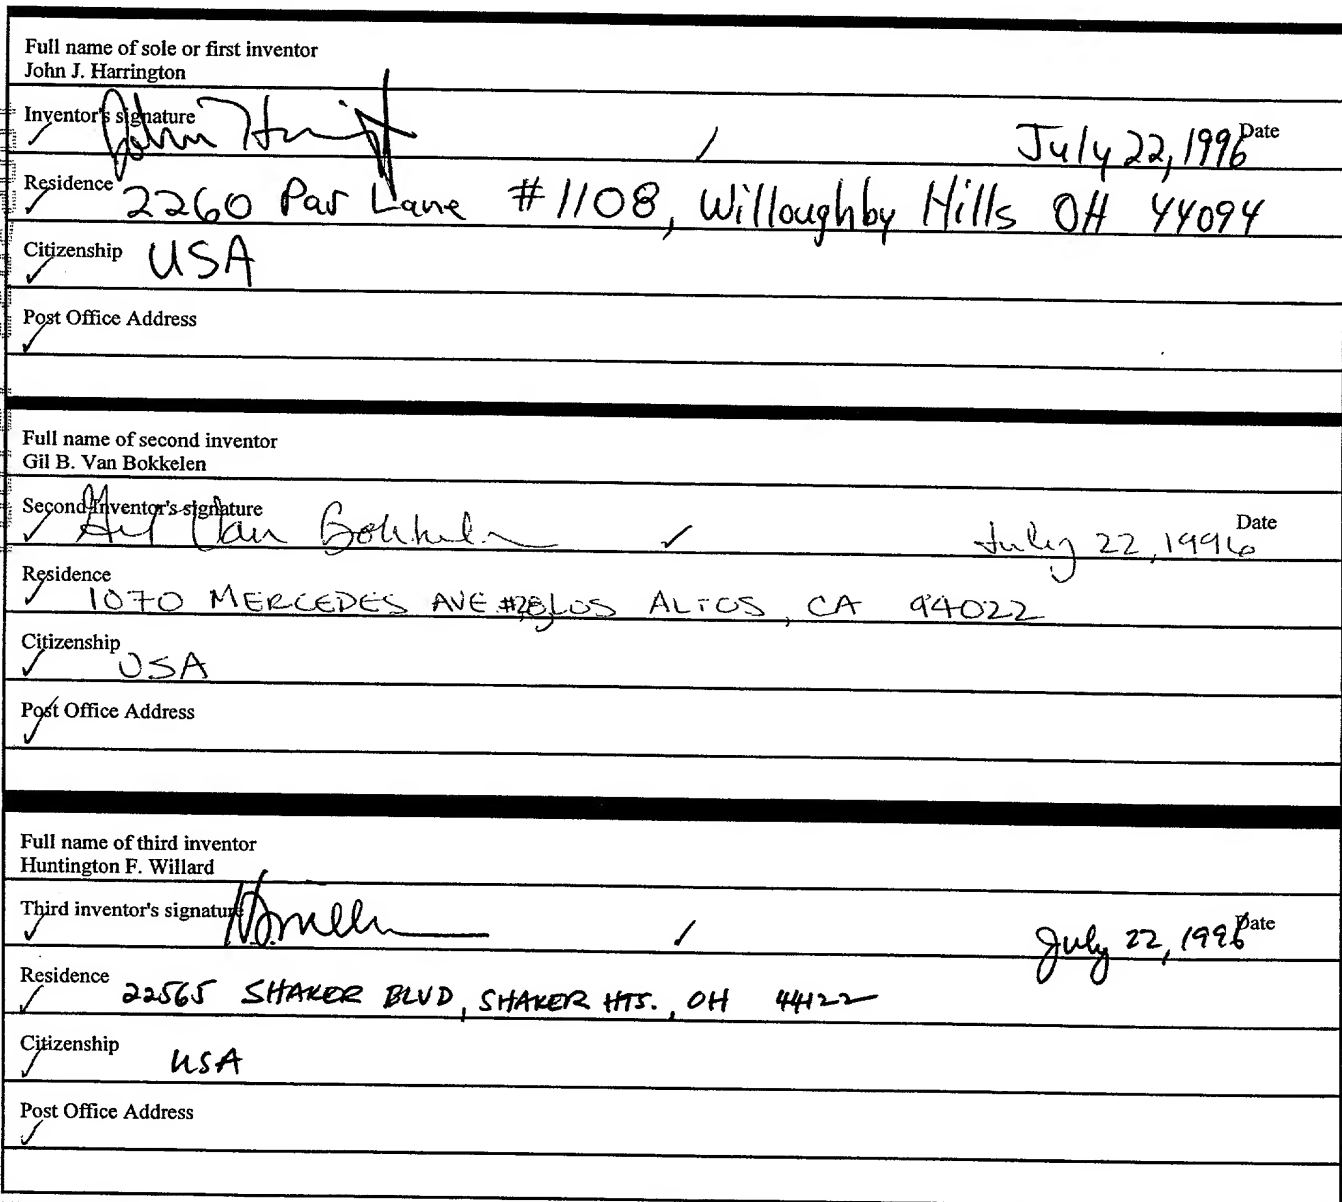 Full name of sole or first inventor
John J. Harrington
Inventor's signature John
July 22, 1996 Date
Residence 2260 Par Lane #1108, Willoughby Hills OH 44094
Citizenship USA
Post Office Address
Full name of second inventor
Gil B. Van Bokkelen
Second Inventor's signature Gil Van Bokkelen
July 22, 1996 Date
Residence 1070 MERCEDES AVE #28, LOS ALTOS, CA 94022
Citizenship USA
Post Office Address
Full name of third inventor
Huntington F. Willard
Third inventor's signature
July 22, 1996 Date
Residence 22565 SHAKER BLVD, SHAKER HTS., OH 44122
Citizenship USA
Post Office Address